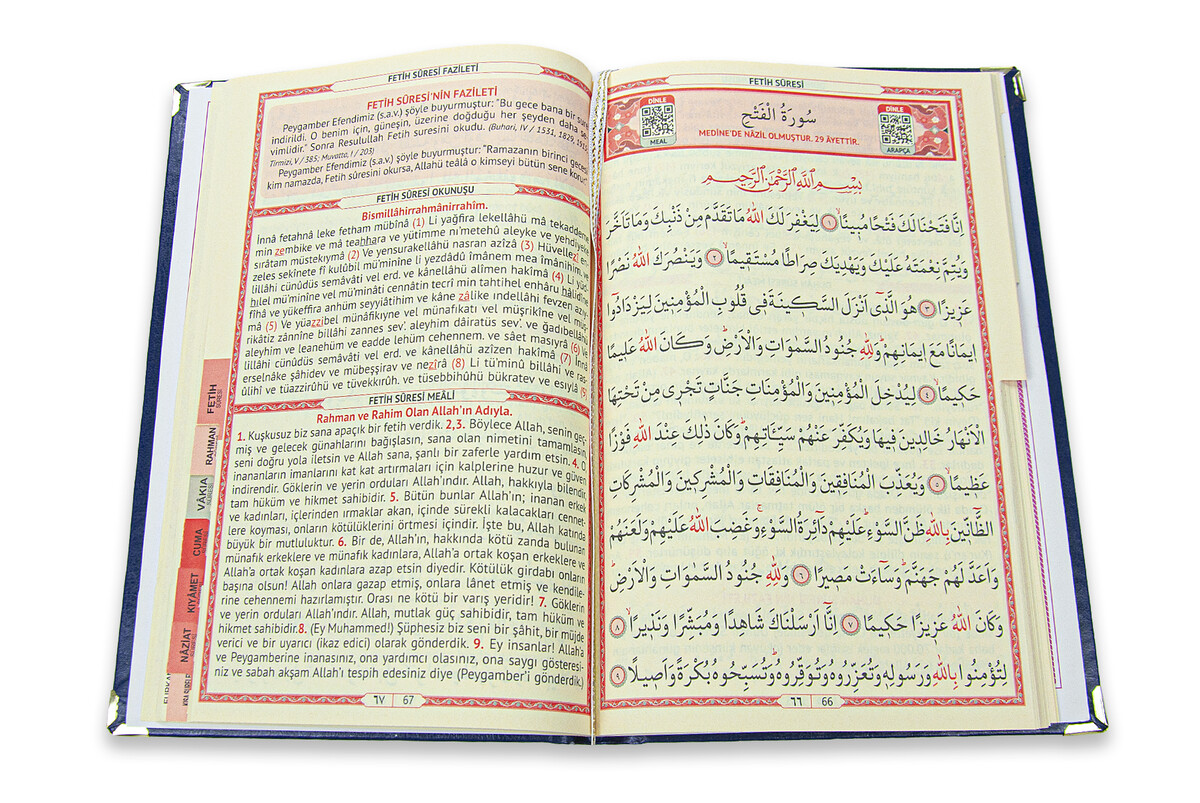 FETİH SÛRESİ
DİNLE
MEAL
سُورَةُ الْفَتْحِ
MEDİNE'DE NÂZİL OLMUŞTUR. 29 ÂYETTİR.
DİNLE
ARAPÇA
بِسْمِ اللهِ الرَّحْمٰنِ الرَّحِيمِ
اِنَّا فَتَحْنَا لَكَ فَتْحًا مُبِينًا ﴿١﴾ لِيَغْفِرَ لَكَ اللهُ مَا تَقَدَّمَ مِنْ ذَنْبِكَ وَمَا تَاَخَّرَ
وَيُتِمَّ نِعْمَتَهُ عَلَيْكَ وَيَهْدِيَكَ صِرَاطًا مُسْتَقِيمًا ﴿٢﴾ وَيَنْصُرَكَ اللهُ نَصْرًا
عَزِيزًا ﴿٣﴾ هُوَ الَّذِٓي اَنْزَلَ السَّكِينَةَ فِي قُلُوبِ الْمُؤْمِنِينَ لِيَزْدَادُٓوا
اِيمَانًا مَعَ اِيمَانِهِمْ وَلِلّٰهِ جُنُودُ السَّمٰوَاتِ وَالْاَرْضِ وَكَانَ اللهُ عَلِيمًا
حَكِيمًا ﴿٤﴾ لِيُدْخِلَ الْمُؤْمِنِينَ وَالْمُؤْمِنَاتِ جَنَّاتٍ تَجْرِي مِنْ تَحْتِهَا
الْاَنْهَارُ خَالِدِينَ فِيهَا وَيُكَفِّرَ عَنْهُمْ سَيِّـَٔاتِهِمْ وَكَانَ ذٰلِكَ عِنْدَ اللهِ فَوْزًا
عَظِيمًا ﴿٥﴾ وَيُعَذِّبَ الْمُنَافِقِينَ وَالْمُنَافِقَاتِ وَالْمُشْرِكِينَ وَالْمُشْرِكَاتِ
الظَّٓانِّينَ بِاللهِ ظَنَّ السَّوْءِ عَلَيْهِمْ دَٓائِرَةُ السَّوْءِ وَغَضِبَ اللهُ عَلَيْهِمْ وَلَعَنَهُمْ
وَاَعَدَّ لَهُمْ جَهَنَّمَ وَسَٓاءَتْ مَصِيرًا ﴿٦﴾ وَلِلّٰهِ جُنُودُ السَّمٰوَاتِ وَالْاَرْضِ
وَكَانَ اللهُ عَزِيزًا حَكِيمًا ﴿٧﴾ اِنَّٓا اَرْسَلْنَاكَ شَاهِدًا وَمُبَشِّرًا وَنَذِيرًا ﴿٨﴾
لِتُؤْمِنُوا بِاللهِ وَرَسُولِهِ وَتُعَزِّرُوهُ وَتُوَقِّرُوهُ وَتُسَبِّحُوهُ بُكْرَةً وَاَصِيلًا ﴿٩﴾
٦٦ 66
FETİH SÛRESİ FAZİLETİ
FETİH SÛRESİ'NİN FAZİLETİ
Peygamber Efendimiz (s.a.v.) şöyle buyurmuştur: "Bu gece bana bir sure
indirildi. O benim için, güneşin, üzerine doğduğu her şeyden daha se-
vimlidir." Sonra Resulullah Fetih suresini okudu. (Buhari, IV / 1531, 1829, 1915;
Tirmizi, V / 385; Muvatta, I / 203)
Peygamber Efendimiz (s.a.v.) şöyle buyurmuştur: "Ramazanın birinci gecesi
kim namazda, Fetih sûresini okursa, Allahü teâlâ o kimseyi bütün sene korur."
FETİH SÛRESİ OKUNUŞU
Bismillâhirrahmânirrahîm.
İnnâ fetahnâ leke fetham mübînâ (1) Li yağfira lekellâhü mâ tekaddeme
min zembike ve mâ teahhara ve yütimme ni'metehû aleyke ve yehdiyeke
sırâtam müstekıymâ (2) Ve yensurakellâhü nasran azîzâ (3) Hüvellezî en-
zeles sekînete fî kulûbil mü'minîne li yezdâdû îmânem mea îmânihim, ve
lillâhi cünûdüs semâvâti vel erd. ve kânellâhü alîmen hakîmâ (4) Li yüd-
hilel mü'minîne vel mü'minâti cennâtin tecrî min tahtihel enhâru hâlidîne
fîhâ ve yükeffira anhüm seyyiâtihim ve kâne zâlike ındellâhi fevzen azıy-
mâ (5) Ve yüazzibel münâfikıyne vel münafikati vel müşrikîne vel müş-
rikâtiz zânnîne billâhi zannes sev'. aleyhim dâiratüs sev'. ve ğadıbellâhü
aleyhim ve leanehüm ve eadde lehüm cehennem. ve sâet masıyrâ (6) Ve
lillâhi cünûdüs semâvâti vel erd. ve kânellâhü azîzen hakîmâ (7) İnnâ
erselnâke şâhidev ve mübeşşirav ve nezîrâ (8) Li tü'minû billâhi ve ras-
ûlihî ve tüazzirûhü ve tüvekkırûh. ve tüsebbihûhü bükratev ve esıylâ (9)
FETİH SÛRESİ MEÂLİ
Rahman ve Rahim Olan Allah'ın Adıyla.
1. Kuşkusuz biz sana apaçık bir fetih verdik. 2,3. Böylece Allah, senin geç-
miş ve gelecek günahlarını bağışlasın, sana olan nimetini tamamlasın,
seni doğru yola iletsin ve Allah sana, şanlı bir zaferle yardım etsin. 4. O
inananların imanlarını kat kat artırmaları için kalplerine huzur ve güven
indirendir. Göklerin ve yerin orduları Allah'ındır. Allah, hakkıyla bilendir,
tam hüküm ve hikmet sahibidir. 5. Bütün bunlar Allah'ın; inanan erkek
ve kadınları, içlerinden ırmaklar akan, içinde sürekli kalacakları cennet-
lere koyması, onların kötülüklerini örtmesi içindir. İşte bu, Allah katında
büyük bir mutluluktur. 6. Bir de, Allah'ın, hakkında kötü zanda bulunan
münafık erkeklere ve münafık kadınlara, Allah'a ortak koşan erkeklere ve
Allah'a ortak koşan kadınlara azap etsin diyedir. Kötülük girdabı onların
başına olsun! Allah onlara gazap etmiş, onlara lânet etmiş ve kendile-
rine cehennemi hazırlamıştır. Orası ne kötü bir varış yeridir! 7. Göklerin
ve yerin orduları Allah'ındır. Allah, mutlak güç sahibidir, tam hüküm ve
hikmet sahibidir.8. (Ey Muhammed!) Şüphesiz biz seni bir şâhit, bir müjde
verici ve bir uyarıcı (ikaz edici) olarak gönderdik. 9. Ey insanlar! Allah'a
ve Peygamberine inanasınız, ona yardımcı olasınız, ona saygı gösteresi-
niz ve sabah akşam Allah'ı tespih edesiniz diye (Peygamber'i gönderdik.)
٦٧ 67
FETİH SÛRESİ
RAHMAN
VÂKIA
CUMA
KIYÂMET
NÂZİAT